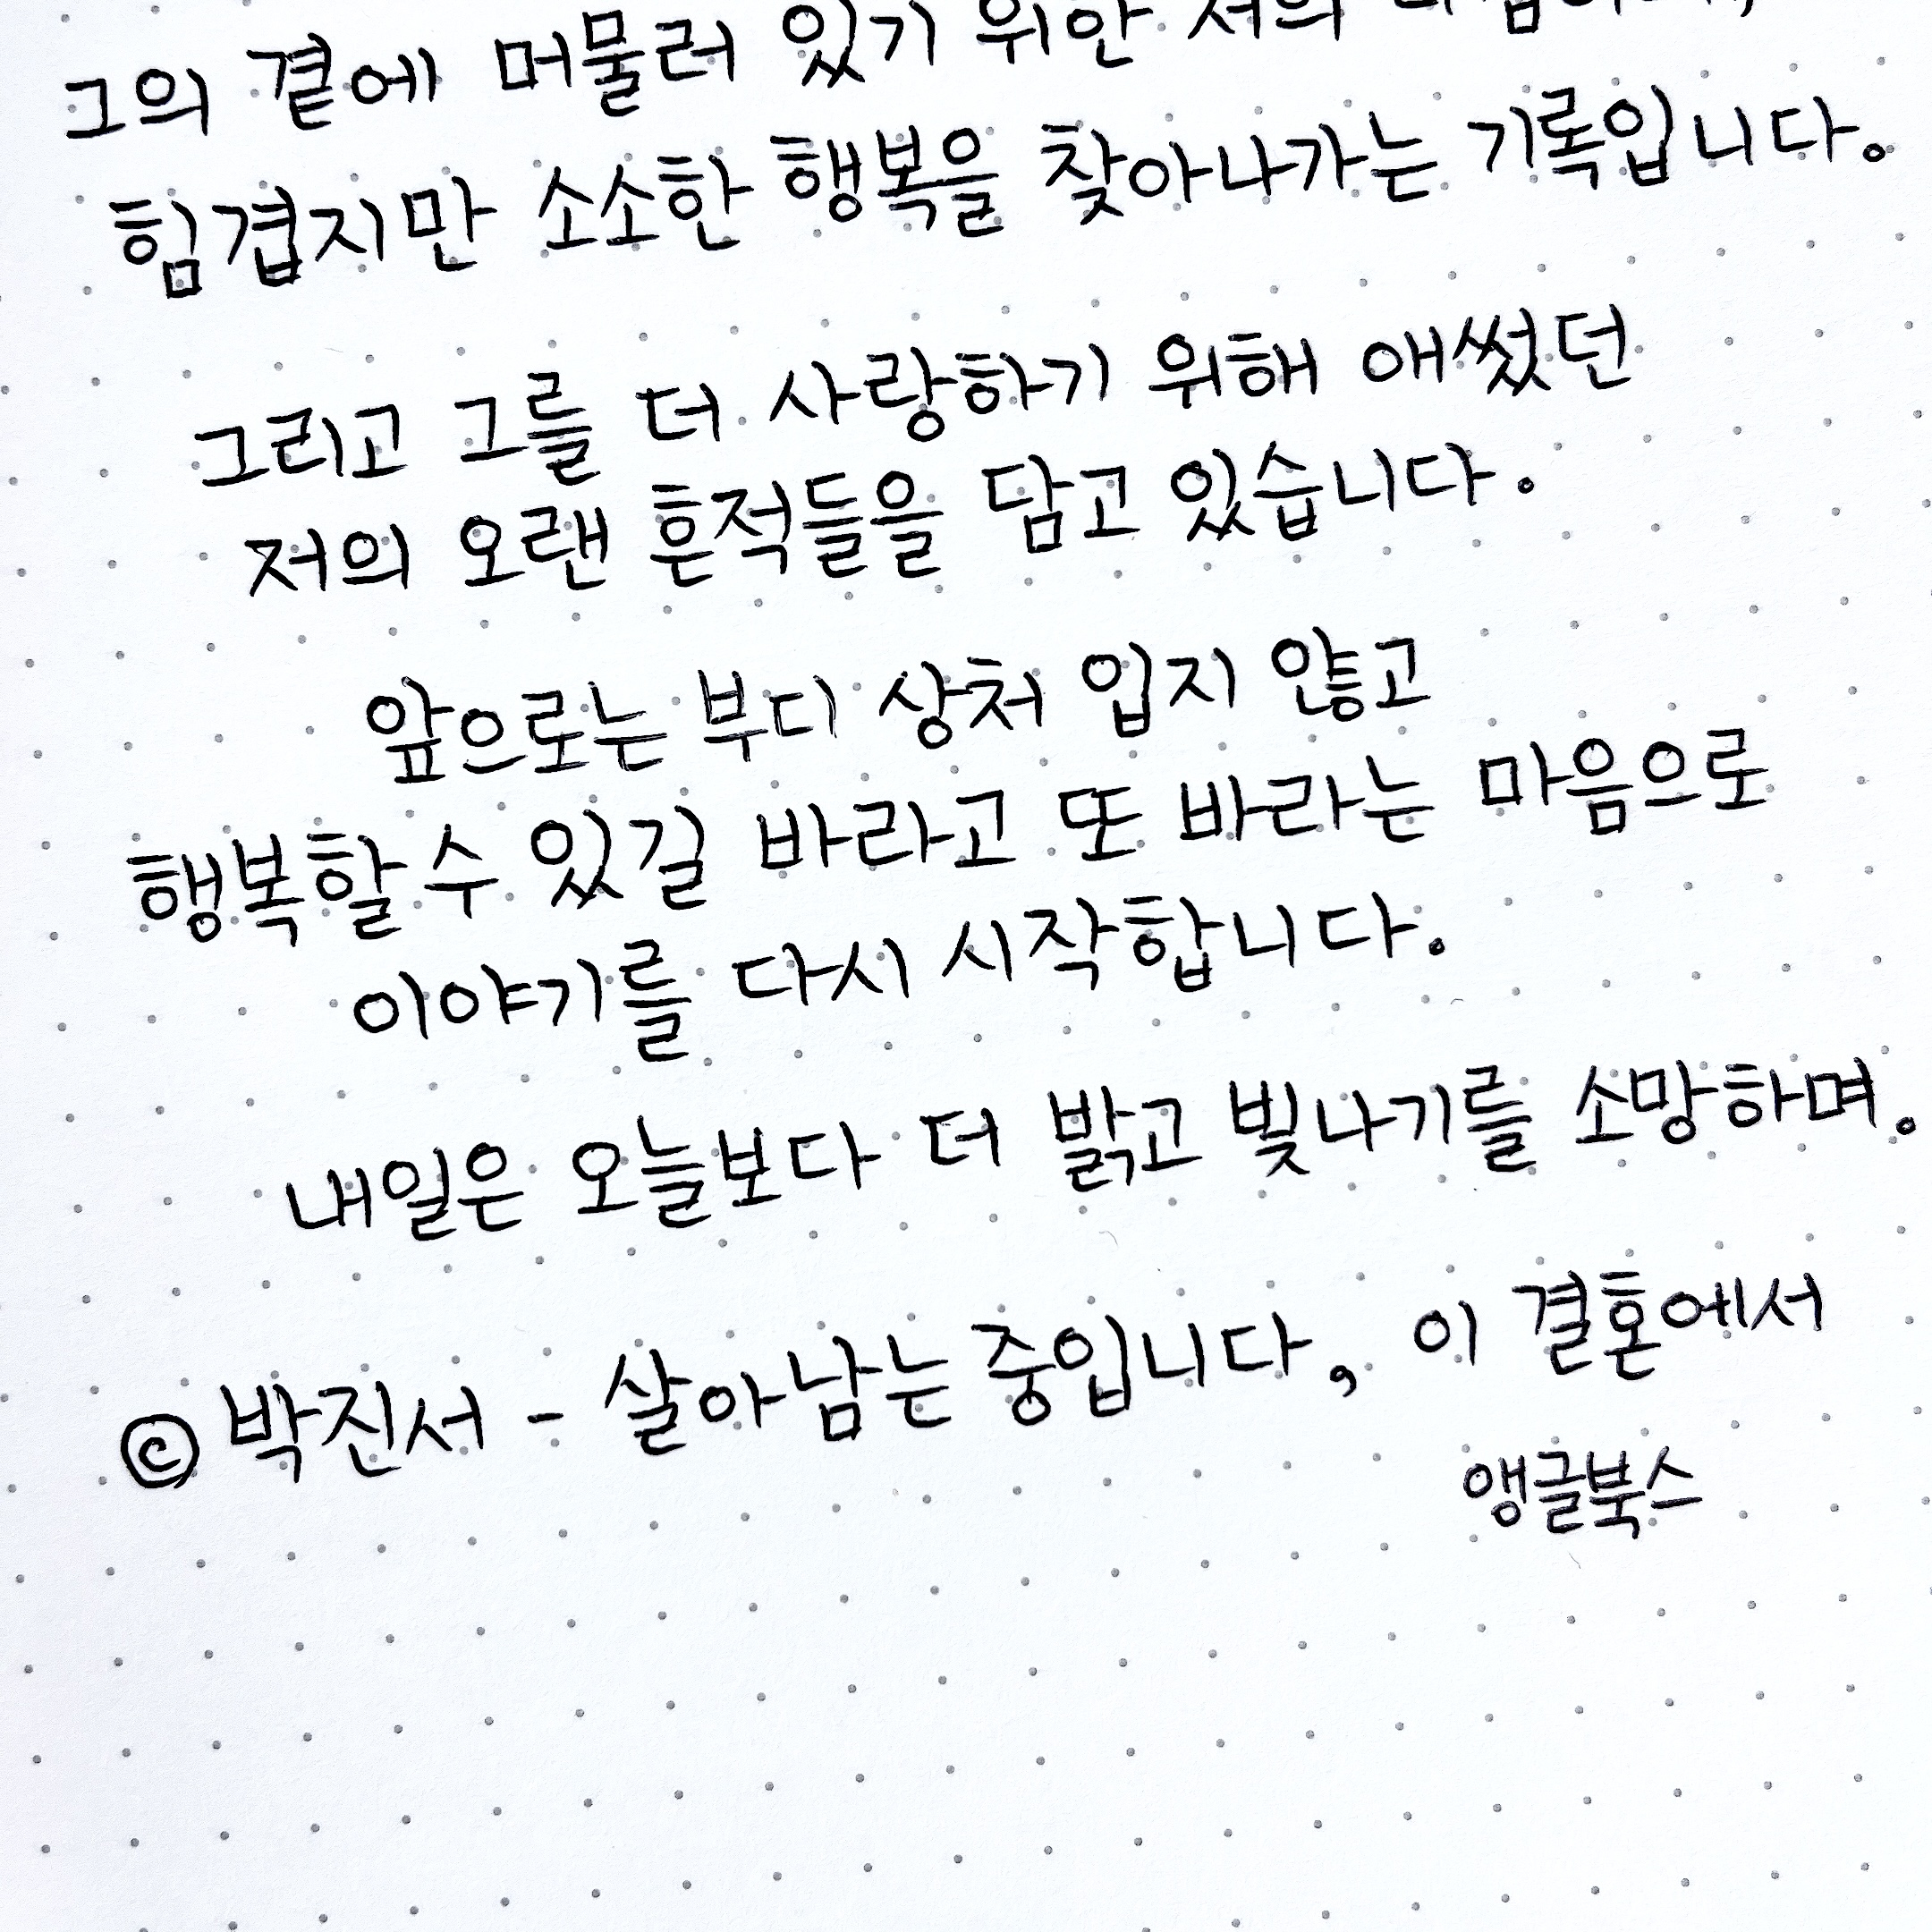 그의 곁에 머물러 있기 위한 저의
힘겹지만 소소한 행복을 찾아나가는 기록입니다.
그리고 그를 더 사랑하기 위해 애썼던
저의 오랜 흔적들을 담고 있습니다.
앞으로는 부디 상처 입지 않고
행복할 수 있길 바라고 또 바라는 마음으로
이야기를 다시 시작합니다.
내일은 오늘보다 더 밝고 빛나기를 소망하며.
© 박진서 - 살아남는 중입니다, 이 결혼에서
앵글북스